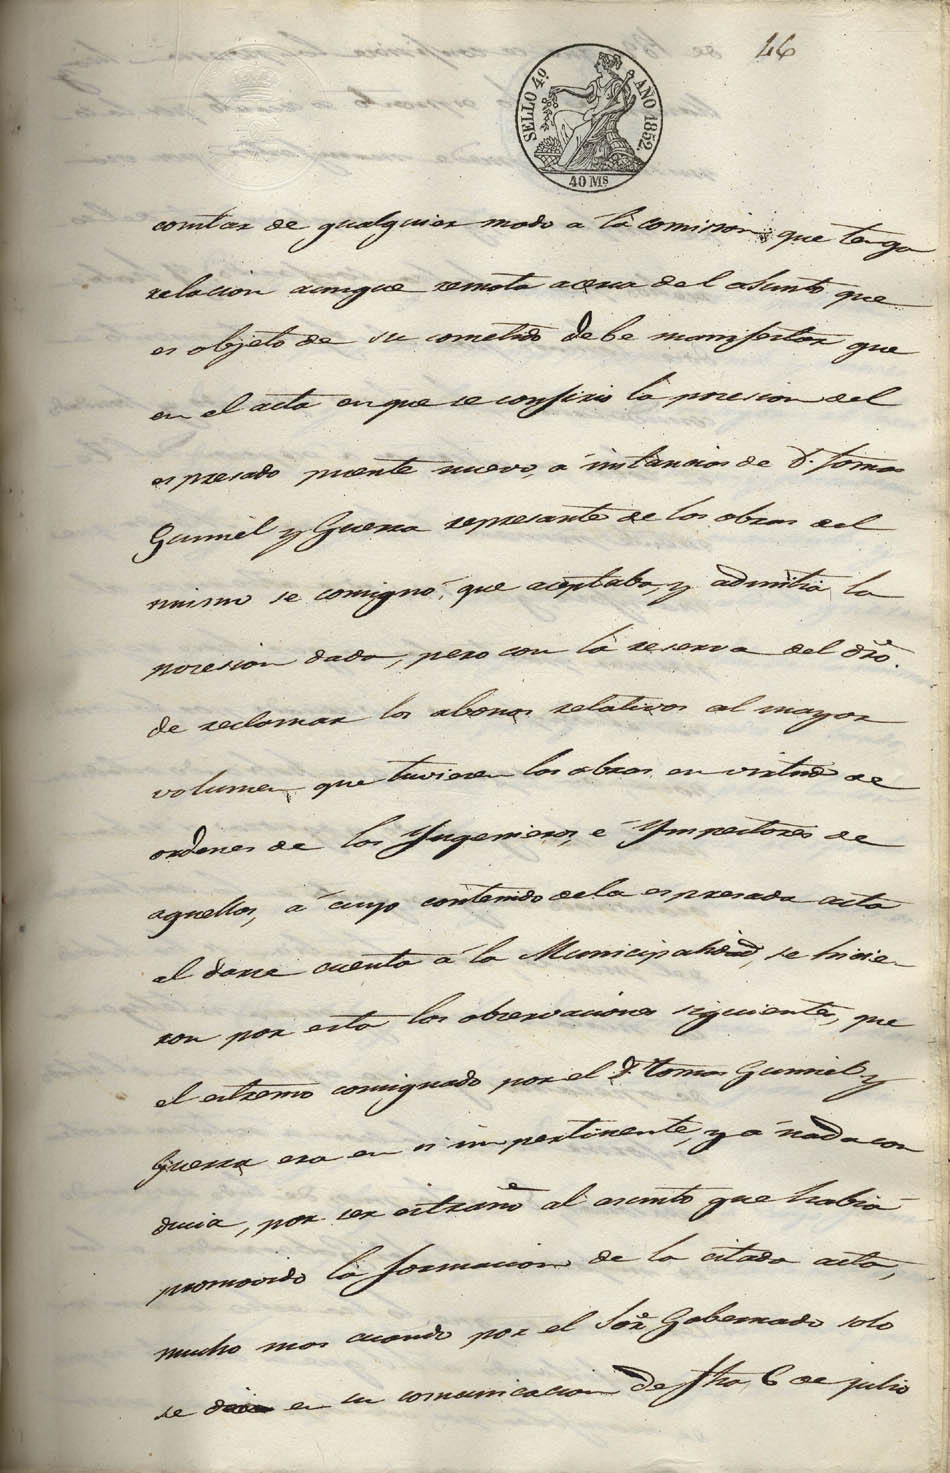 46
SELLO 4º. AÑO 1852.
40 Ms
constar de qualquier modo a la comision que tenga
relacion aunque remota acerca del asunto que
es objeto de su cometido debe manifestar que
en el acta en que se confirio la posesion del
espresado puente nuevo, a instancias de D. Tomas
Gumiel y Guerra represante de las obras del
mismo se consignó, que aceptaba, y admitia la
posesion dada, pero con la reserva del dro.
de reclamar los abonos relativos al mayor
volumen que tuviesen las obras en virtud de
ordenes de los Yngenieros, é Ynspectores de
aquellas, á cuyo contenido de la espresada acta
al darse cuenta á la Municipalidad, se hicie-
ron por esta las observaciones siguientes, que
el estremo consignado por el D. Tomas Gumiel y
Guerra era en si impertinente, y á nada con
ducia, por ser estraño al asunto que habia
promovido la formacion de la citada acta,
mucho mas cuando por el Sor. Gobernado solo
se dice en su comunicacion de fha 6 de julio